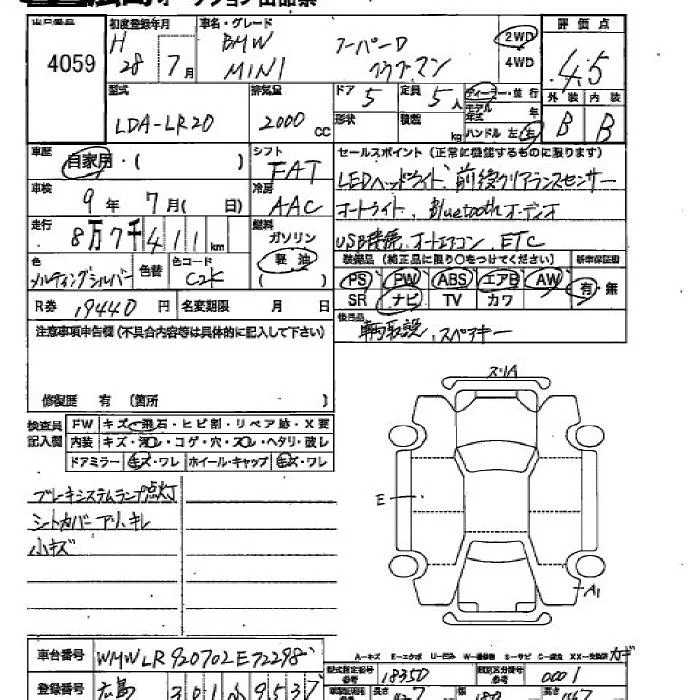 オークション出品票
出品番号 初度登録年月 車名・グレード 評価点
4059 H 28年7月 BMW MINI クーパーD クラブマン 2WD 4WD 4.5
型式 排気量 ドア 5 定員 5人 ディーラー・並行 外装 内装
LDA-LR20 2000cc 形状 積載 kg モデル年式 年 ハンドル 左 右 B B
車歴 自家用・( ) シフト FAT セールスポイント(正常に機能するものに限ります)
車検 9年7月( 日) 冷房 AAC LEDヘッドライト、前後クリアランスセンサー
走行 8万7千411km 燃料 ガソリン 軽油 ( ) オートライト、Bluetoothオーディオ
USB接続、オートエアコン、ETC
色 メルティングシルバー 色替 色コード C2K 装備品(純正品に限り○をつけてください) 新車保証書
PS PW ABS エアB AW 有・無
SR ナビ TV カワ
R券 19440円 名変期限 月 日 後日品
注意事項申告欄(不具合内容等は具体的に記入して下さい) 車輌取説、スペアキー
修復歴 有 (箇所 )
検査員記入欄 FW キズ・飛石・ヒビ割・リペア跡・X要
内装 キズ・汚レ・コゲ・穴・スレ・ヘタリ・破レ
ドアミラー キズ・ワレ ホイール・キャップ キズ・ワレ
ブレーキシステムランプ点灯
シートカバーアリ、キレ
小キズ
スリA
E
A1
A=キズ E=エクボ U=凹ミ W=補修跡 S=サビ C=腐食 XX=交換済
車台番号 WMWLR920702E72298 型式指定番号 参考 18350 類別区分番号 参考 0001
登録番号 広島 301 9537 長さ 427 180 147